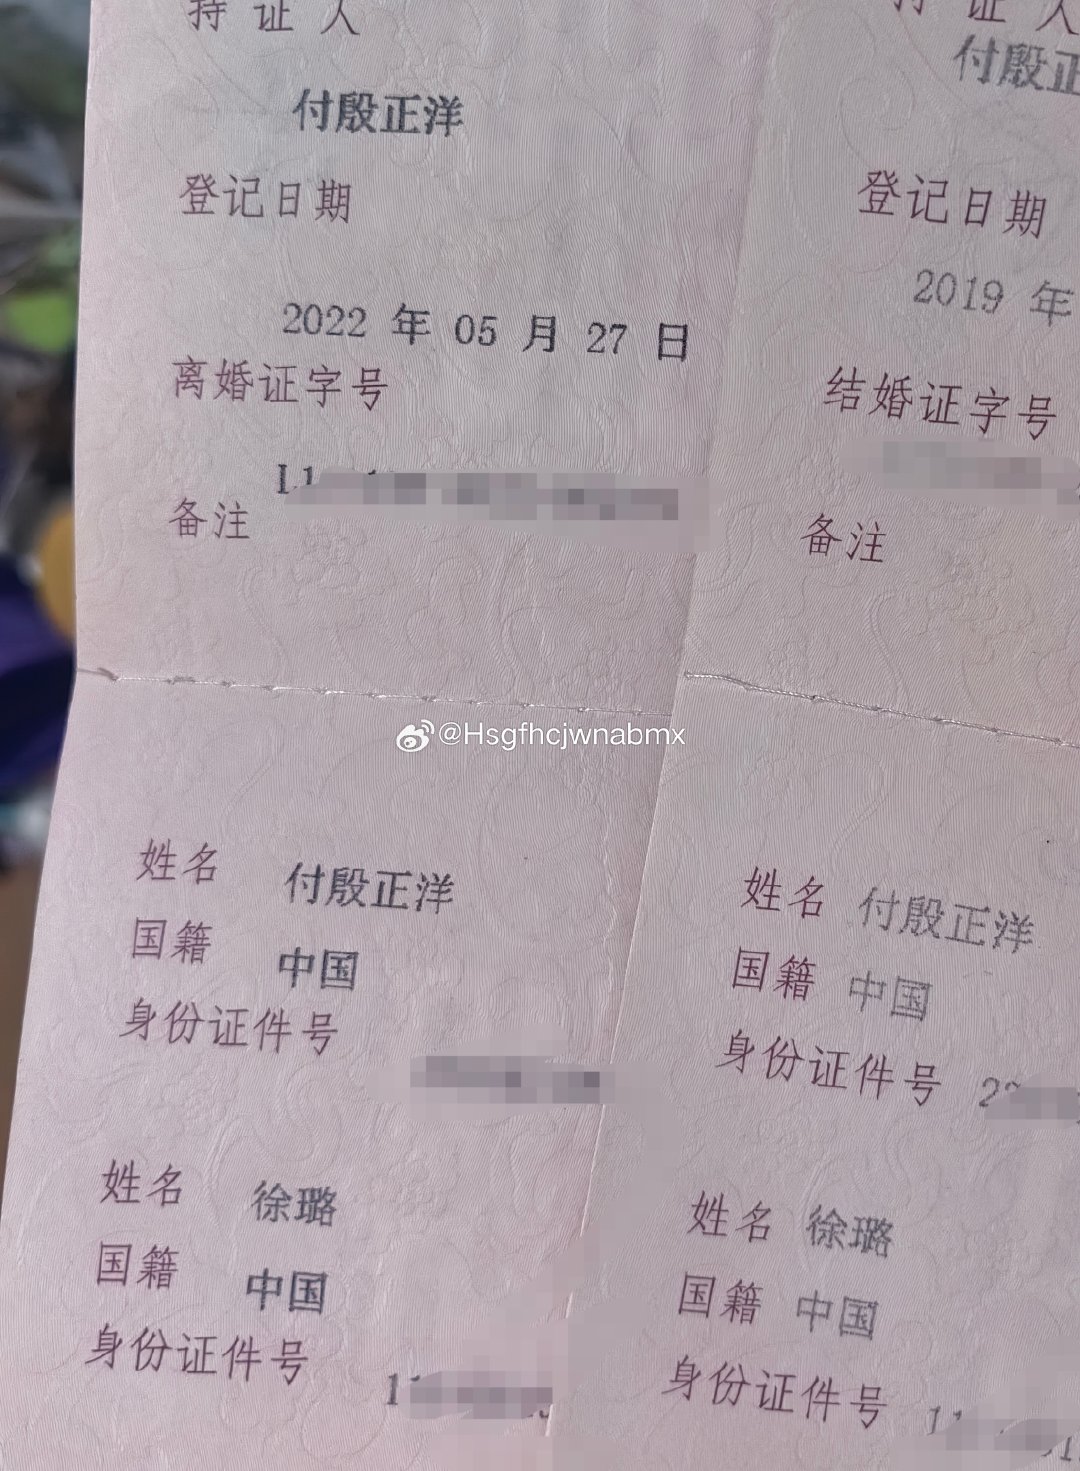 持证人
付殷正洋
登记日期
2022 年 05 月 27 日
离婚证字号
备注
姓名 付殷正洋
国籍 中国
身份证件号
姓名 徐璐
国籍 中国
身份证件号
持证人
付殷正
登记日期
2019 年
结婚证字号
备注
姓名 付殷正洋
国籍 中国
身份证件号
姓名 徐璐
国籍 中国
身份证件号
@Hsgfhcjwnabmx